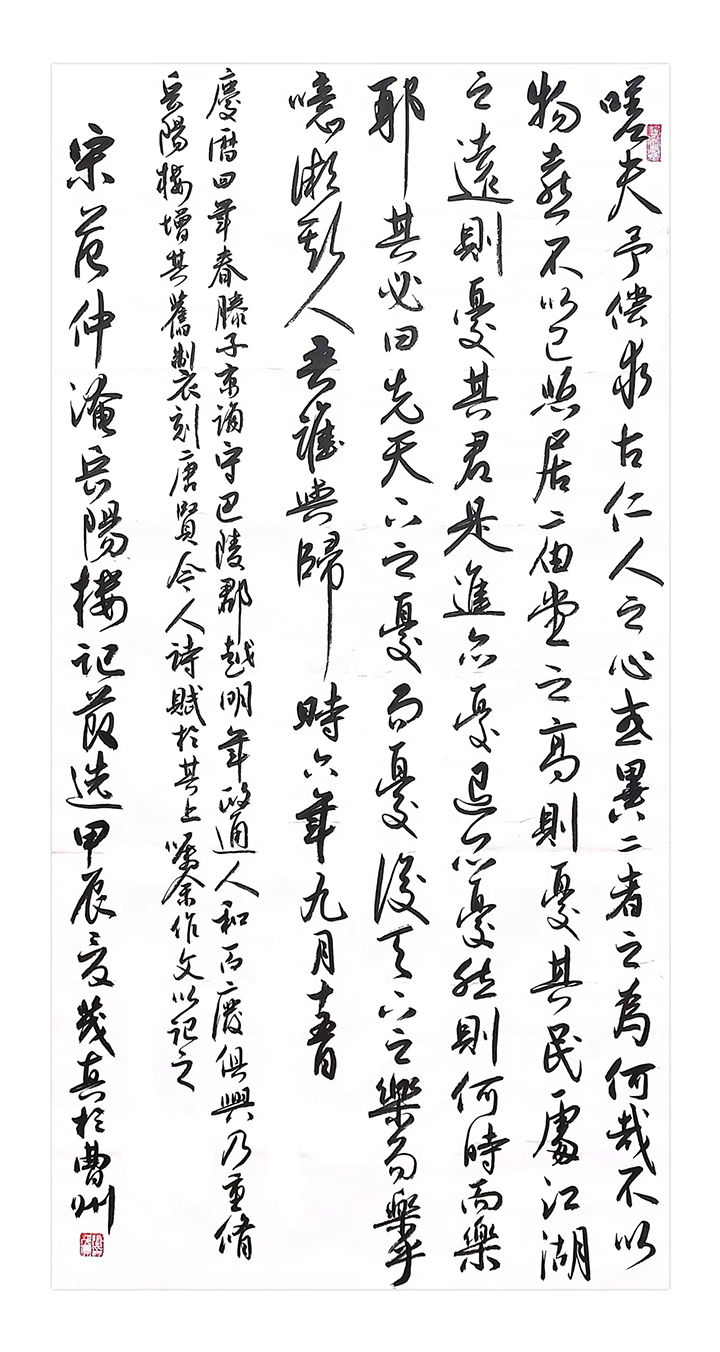 嗟夫予偿求古仁人之心或異二者之為何哉不以
物喜不以己悲居廟堂之高則憂其民處江湖
之遠則憂其君是進亦憂退亦憂然則何時而樂
耶其必曰先天下之憂而憂後天下之樂而樂乎
噫微斯人吾誰與歸 時六年九月十五日
慶曆四年春滕子京謫守巴陵郡越明年政通人和百廢俱興乃重脩
岳陽樓增其舊製刻唐賢今人詩賦於其上嘱余作文以記之
宋范仲淹岳陽樓記節選甲辰夏茂真於曹州